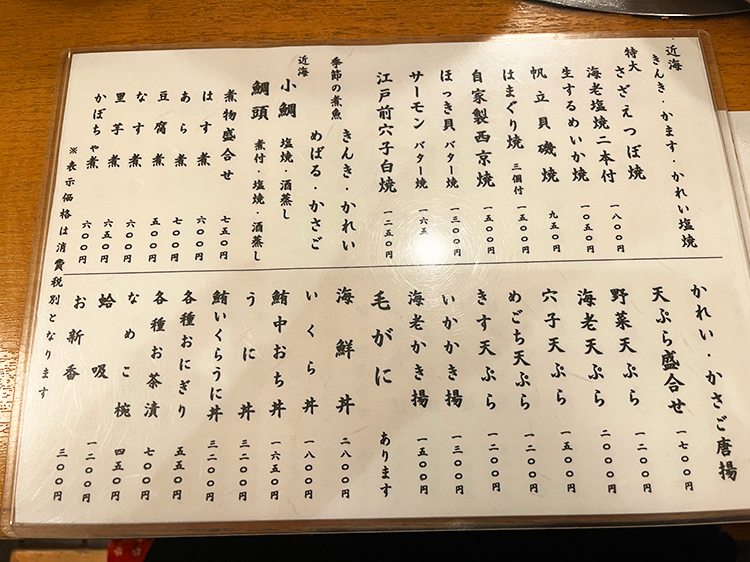 近海 きんき・かます・かれい塩焼
特大 さざえつぼ焼
海老塩焼二本付 一八〇〇円
生するめいか焼 一〇五〇円
帆立貝磯焼 九五〇円
はまぐり焼 三個付 一五〇〇円
自家製西京焼 一五〇〇円
ほっき貝 バター焼 一三〇〇円
サーモン バター焼
江戸前穴子白焼 一二五〇円
季節の煮魚 きんき・かれい
めばる・かさご
近海 小鯛 塩焼・酒蒸し
鯛頭 煮付・塩焼・酒蒸し
煮物盛合せ 七五〇円
はす煮 六〇〇円
あら煮 七〇〇円
豆腐煮 五〇〇円
なす煮 六〇〇円
里芋煮 六〇〇円
かぼちゃ煮 六〇〇円
※表示価格は消費税別となります
かれい・かさご唐揚
天ぷら盛合せ 一七〇〇円
野菜天ぷら 一二〇〇円
海老天ぷら 二〇〇〇円
穴子天ぷら 一五〇〇円
めごち天ぷら 一二〇〇円
きす天ぷら 一二〇〇円
いかかき揚 一三〇〇円
海老かき揚 一五〇〇円
毛がに あります
海鮮丼 二八〇〇円
いくら丼 一八〇〇円
鮪中おち丼 一六五〇円
うに丼 三二〇〇円
鮪いくらうに丼 三二〇〇円
各種おにぎり 五五〇円
各種お茶漬 七〇〇円
なめこ椀 四五〇円
蛤吸 一二〇〇円
お新香 三〇〇円